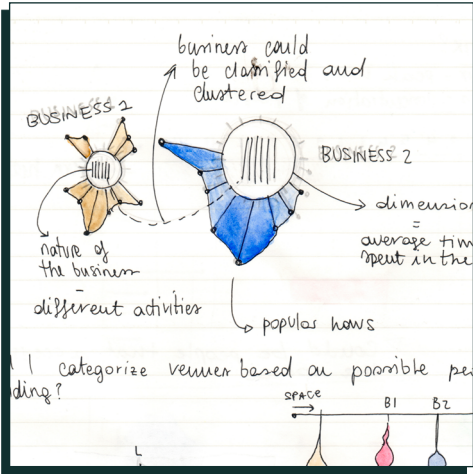 business could
be classified and
clustered
BUSINESS 1
BUSINESS 2
dimension
=
average tim
spent in the
nature of
the business
=
different activities
popular hours
I categorize venues based on possible pe
ding?
SPACE
B1
B2
L